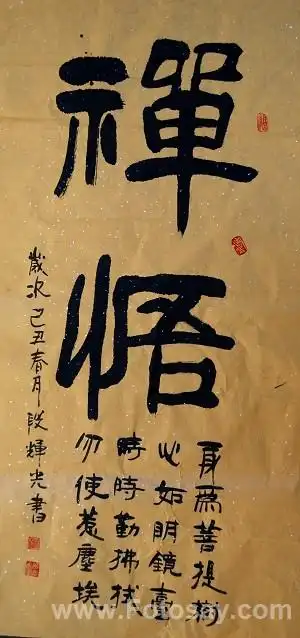 禪悟
身爲菩提樹
心如明鏡臺
時時勤拂拭
勿使惹塵埃
歲次己丑春月段輝光書
www.Fotosky.com